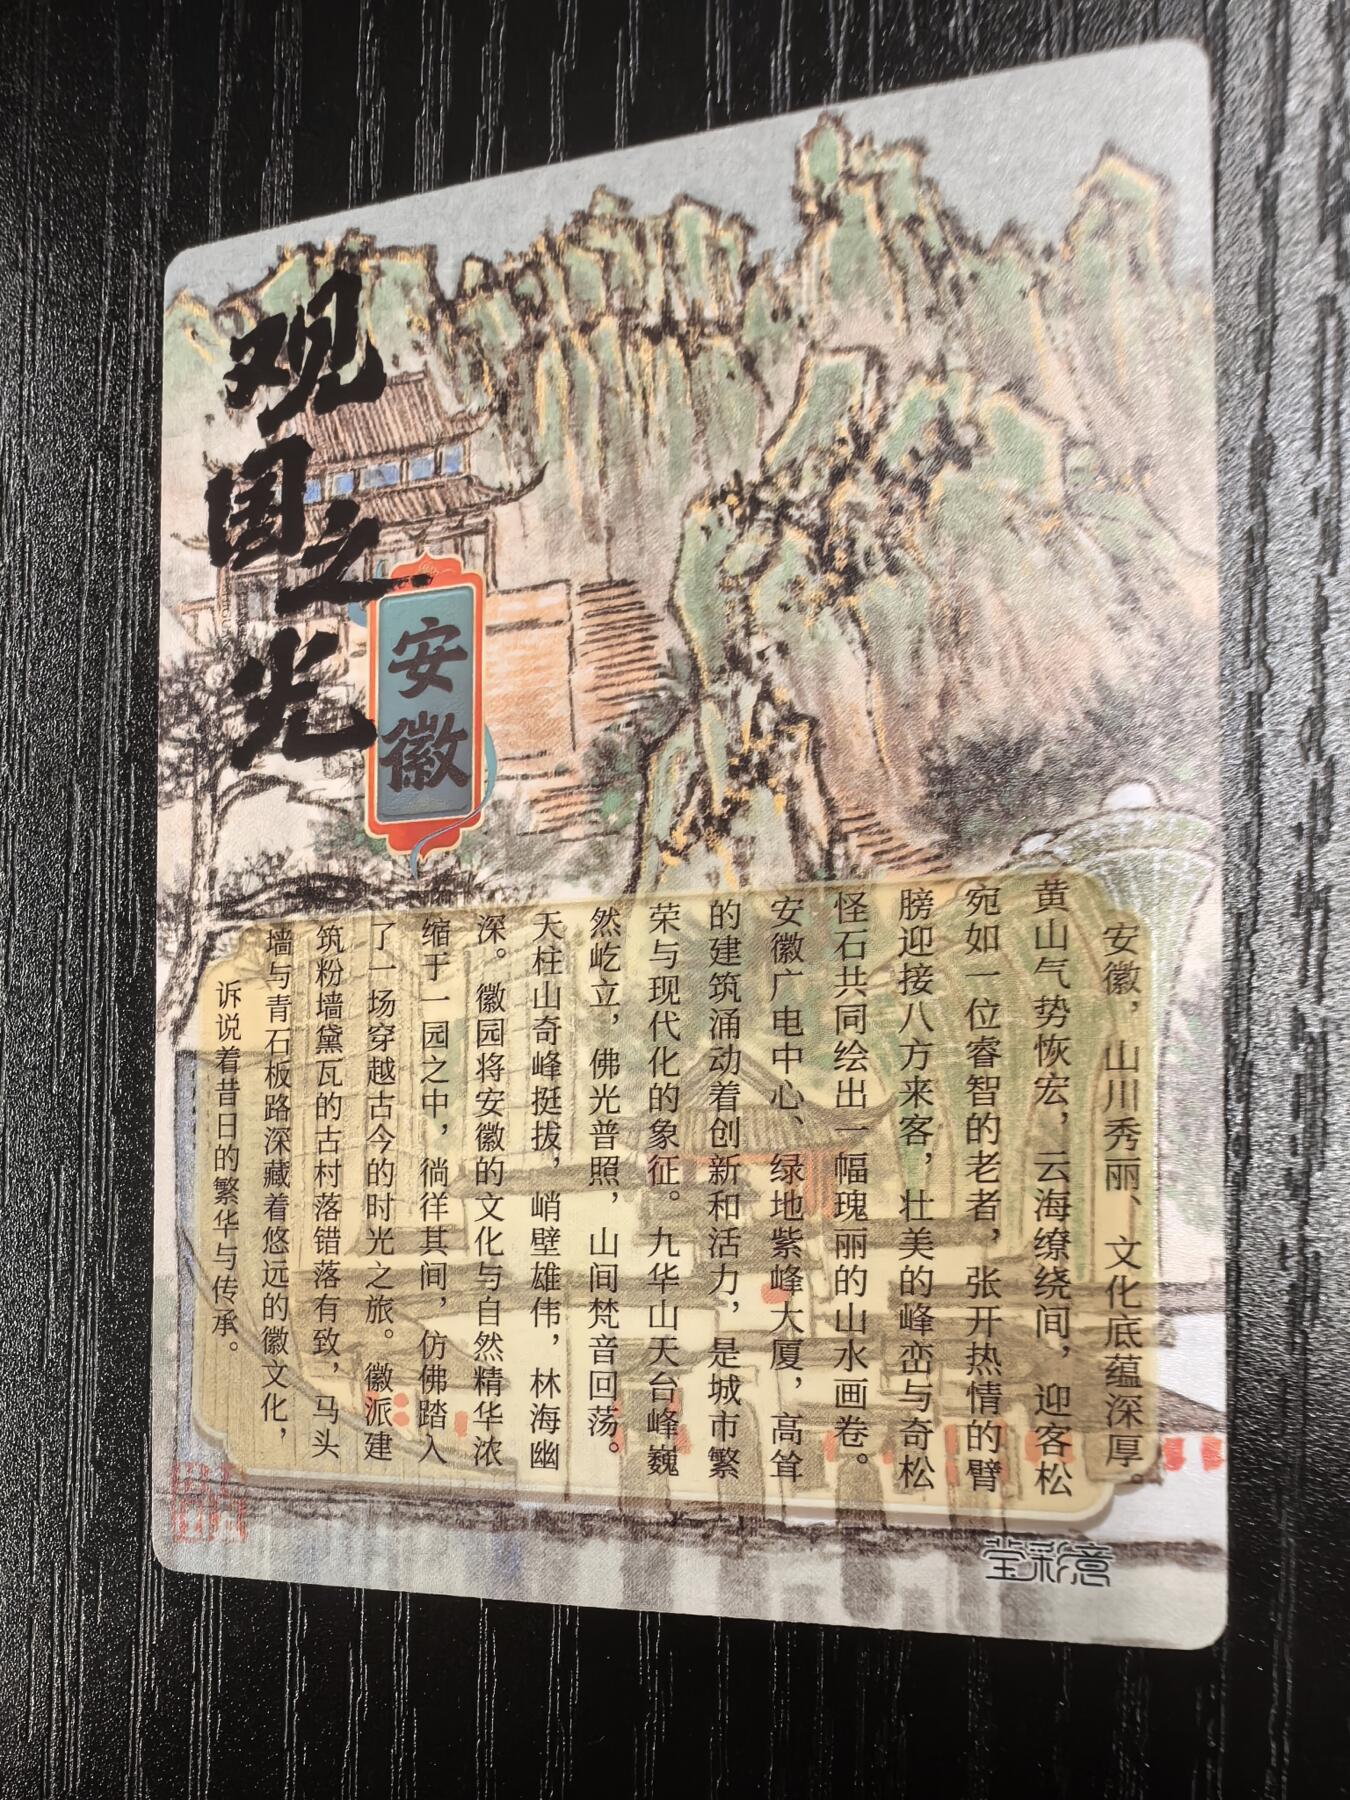 观国之光
安徽
安徽，山川秀丽、文化底蕴深厚。
黄山气势恢宏，云海缭绕间，迎客松
宛如一位睿智的老者，张开热情的臂
膀迎接八方来客，壮美的峰峦与奇松
怪石共同绘出一幅瑰丽的山水画卷。
安徽广电中心、绿地紫峰大厦，高耸
的建筑涌动着创新和活力，是城市繁
荣与现代化的象征。九华山天台峰巍
然屹立，佛光普照，山间梵音回荡。
天柱山奇峰挺拔，峭壁雄伟，林海幽
深。徽园将安徽的文化与自然精华浓
缩于一园之中，徜徉其间，仿佛踏入
了一场穿越古今的时光之旅。徽派建
筑粉墙黛瓦的古村落错落有致，马头
墙与青石板路深藏着悠远的徽文化，
诉说着昔日的繁华与传承。
堂彩意